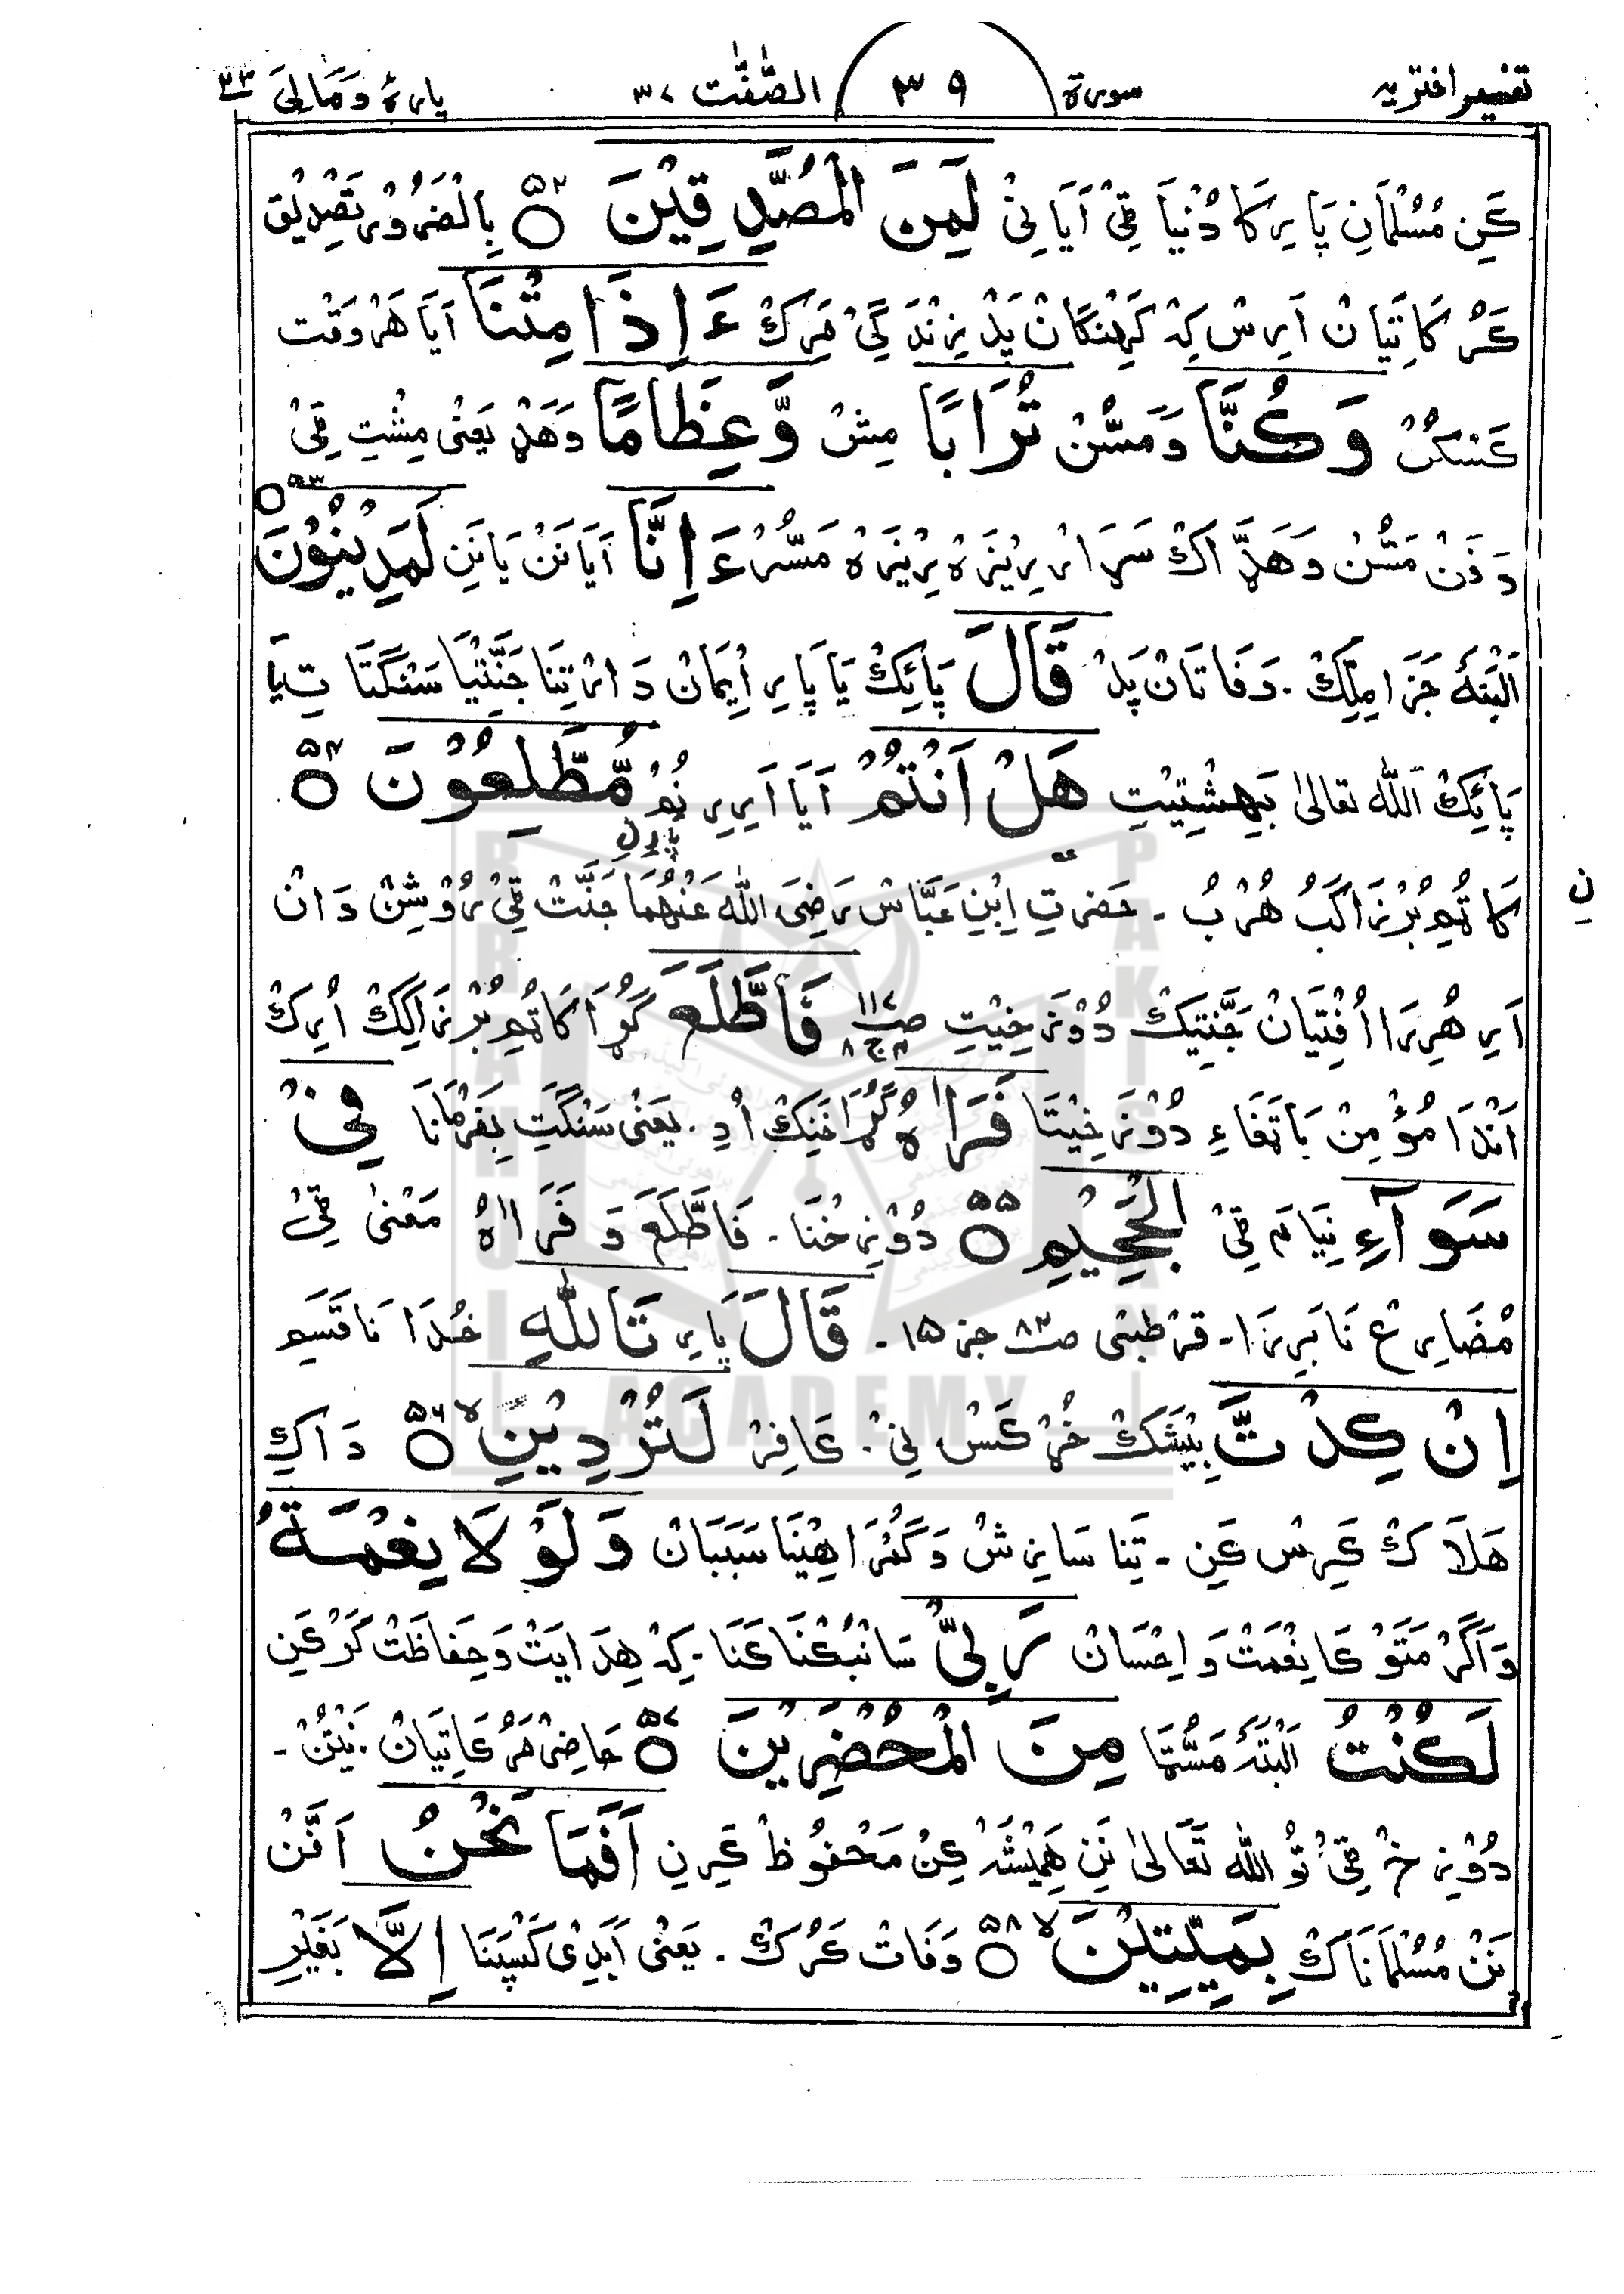 تفسیر اختریہ سورۃ ۳۹ الصّٰفّٰت ۳۷ پارہ وَمَالِیَ ۲۳
کَنِ مُسْلمَانِ پَارِیرَکَا دُنْیَا ٹِیْ اَیَا نِیْ لَمِنَ الْمُصَدِّقِیْنَ ۵۲ بِالْضَرُوْر تَصْدِیْق
کَرُکَاتَیَانْ اَرِسْ کِہْ کَہِنْگَانْ پَدْ زِنْدَہ گِیْ مَرِکْ ءَاِذَا مِتْنَا اَیَا هَرْوَقْت
کَسْکُنْ وَکُنَّا وَمَسُّنْ تُرَابًا مِشْ وَّعِظَامًا وَهَڈْ یَعْنٰی مِشْتِ ٹِیْ
دَفَنْ مَسُّنْ وَهَڈَّاکْ سَڑَارْ رِیْزَہْ رِیْزَہْ مَسُّرْ ءَاِنَّا اَیَا نَنْ یَا نَنِ لَمَدِیْنُوْنَ ۵۳
اَلْبَتَّهْ جَزَا مِلِّکْ ۔ وَفَاتَانْ پَدْ قَالَ پَائِکْ یَا پَارِ اِیْمَانْ دَارْ تِنَا جَنَّتِیْا سَنْگَتَا تِیَا
پَائِکْ اَللّٰه تعالیٰ بَهِشْتِیْتِ هَلْ اَنْتُمْ اَیَا اَرِیرِ نُمْ مُّطَّلِعُوْنَ ۵۴
پَارِنِ
کَاتُمِ بُرْزَاکَبُ هُرْبُ ۔ حَضرتِ اِبْنِ عَبَّاسْ رَضِیَ اللّٰه عَنْهُمَا جَنَّتْ ٹِیْ رُوْشِنْ دَانْ
نِ
اَرِ هُرِرَا اُفْتِیَانْ جَنَّتِیْکْ دُوْزَخِیْتِ صـ۱۱۷ ج۸ فَاطَّلَعَ گُڑَا کَاتُمِ بُرْزَاکِکْ اُرِکْ
اَنْدَا مُؤْمِنْ بَاتَغَاءِ دُوْزَخِیْتَا فَرَاٰهُ گُڑَاخَنِکْ اُدِ ۔ یَعْنٰی سَنْگَتِ بِغَرْمَانَا فِیْ
سَوَآءِ نِیَام ٹِیْ الْجَحِیْمِ ۵۵ دُوْزِخْنَا ۔ فَاطَّلَعَ وَ فَرَاٰهُ مَعْنٰی ٹِیْ
مُضَارِعْ نَا بَرِرَا ۔ قرطبی صـ۸۳ جز ۱۵ ۔ قَالَ پَارِ تَاللّٰهِ خُدَانَا قَسَمِ
اِنْ کِدْتَّ بِیْشَکْ خُڑْکَسْ نِیْ ۔ کَافِرْ لَتُرْدِیْنِ ۵۶ دَاکِ
هَلَاکْ کَرِسْ کَنِ ۔ تِنَا سَازِشْ وَگُمْرَاهِیْنَا سَبَبَانْ وَ لَوْ لَا نِعْمَةُ
وَاَگَرْ مَتَوْکَا نِعْمَتْ وَ اِحْسَانْ رَبِّیْ سَائِبُکْنَا کَنَا ۔ کِہْ هِدَایَتْ وَحِفَاظَتْ کَرْ کَنِ
لَکُنْتُ اَلْبَتَّهْ مَسُّٹَا مِنَ الْمُحْضَرِیْنَ ۵۷ حَاضِرْ مَرُکَاتِیَانْ ۔ نَیْتُنْ ۔
دُوْزِخْ ٹِیْ تُو اللّٰه تَعَالیٰ نَنِ هَمِیْشَہْ کِنْ مَحْفُوظْ کَرِنِ اَفَمَا نَحْنُ اَفَنْ
نَنْ مُسْلمَانَاکْ بِمَیِّتِیْنَ ۵۸ وَفَاتْ کَرُکْ ۔ یَعْنٰی اَبَدِیْ کَسِپَنَا اِلَّا بَغَیْرِ
BRAHUI ACADEMY PAKISTAN